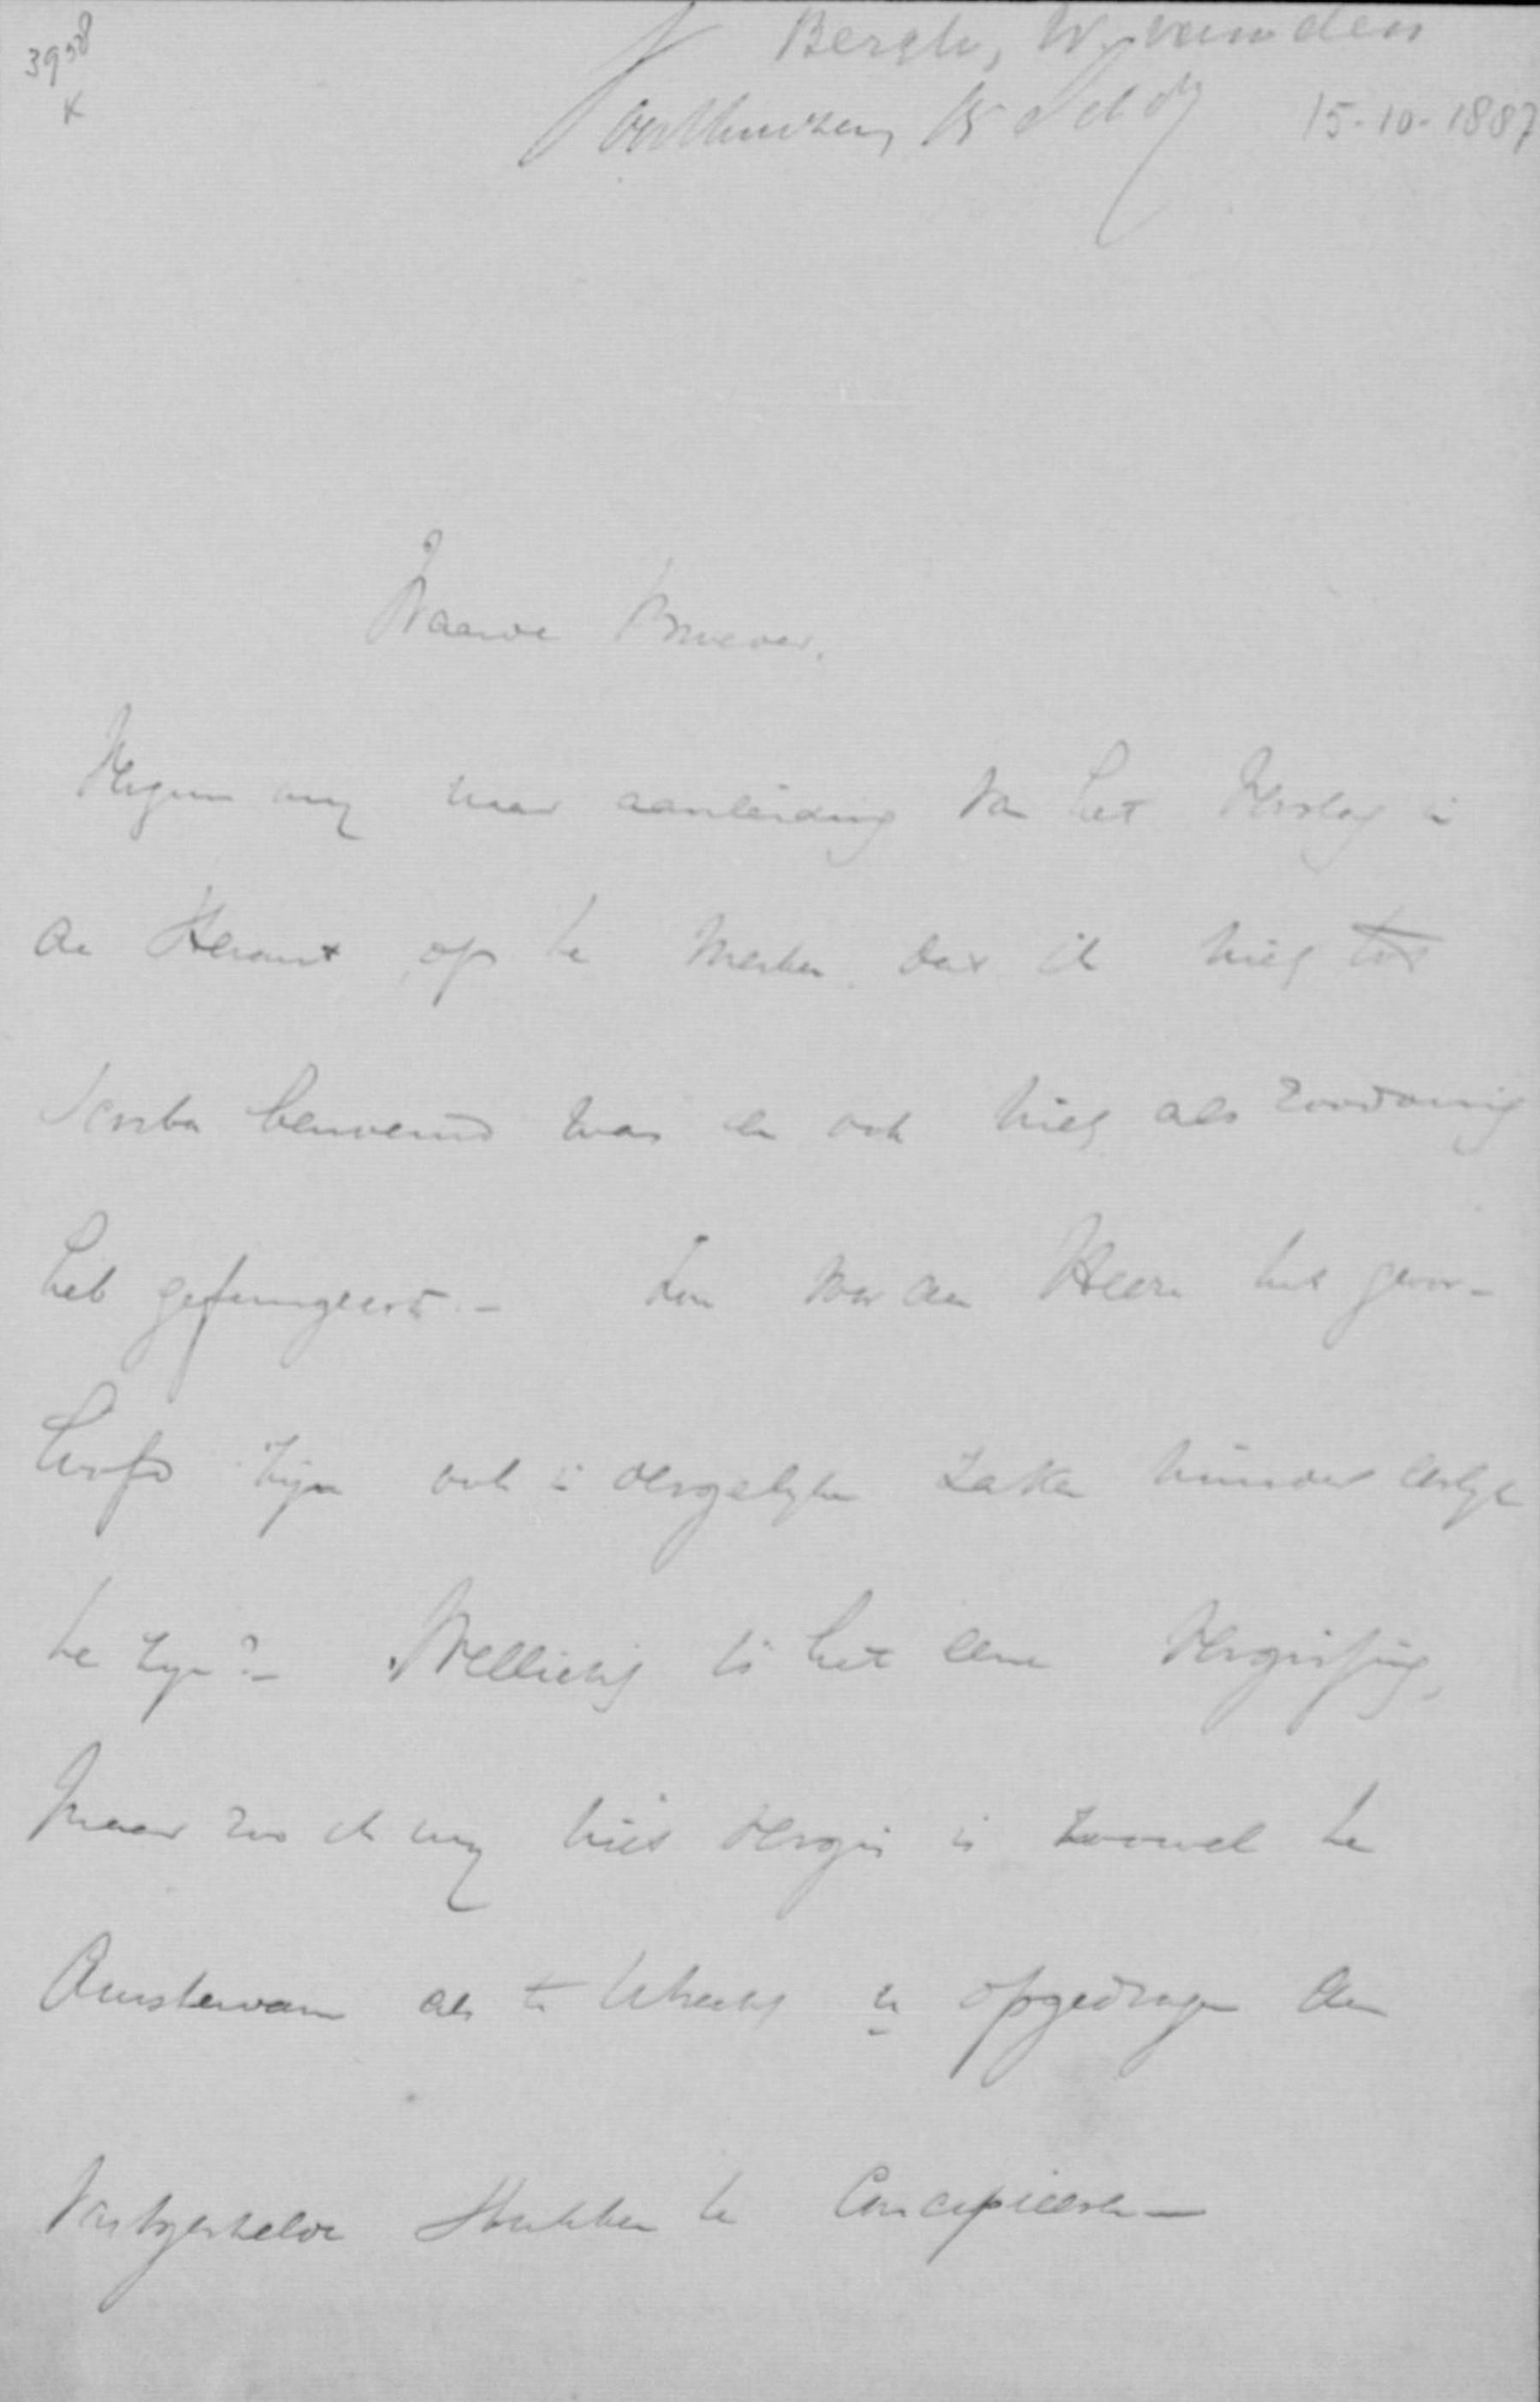 3958
x
Bergh, W. van den
Voorthuizen, 15 Oct 87
15-10-1887
Waarde Broeder.
Vergun mij naar aanleiding van het Verslag in
de Heraut op te merken dat ik niet tot
Scriba benoemd was en ook niet als zoodanig
heb gefungeerd. - Zou voor den Heere het geoor-
loofd zijn ook in dergelijke zaken minder eerlijk
te zijn? - Wellicht is het eene Vergissing,
maar zoo ik mij niet vergis is zoowel te
Amsterdam als te Utrecht u opgedragen de
Vastgestelde Stukken te Concipieeren -